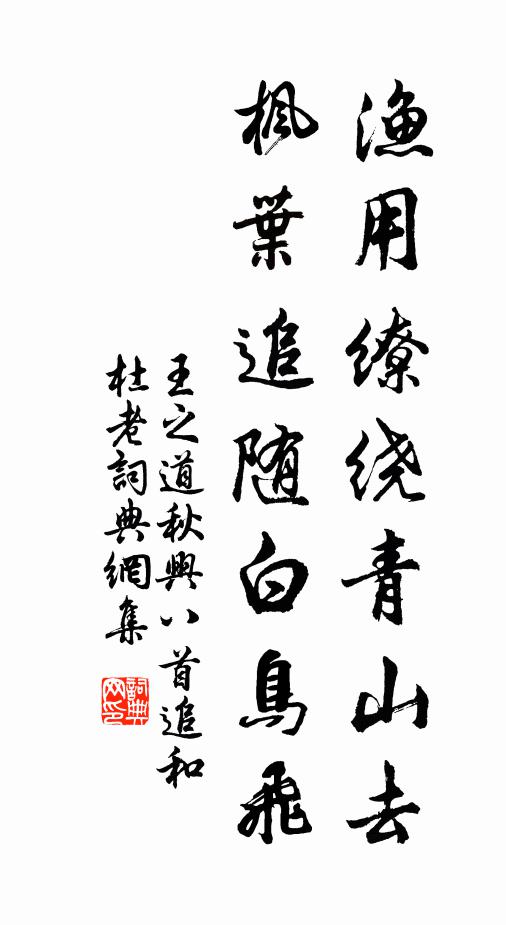 漁用繚绕青山去
枫葉追随白鳥飛
王之道秋興八首追和
杜老詞典網集
詞典网印